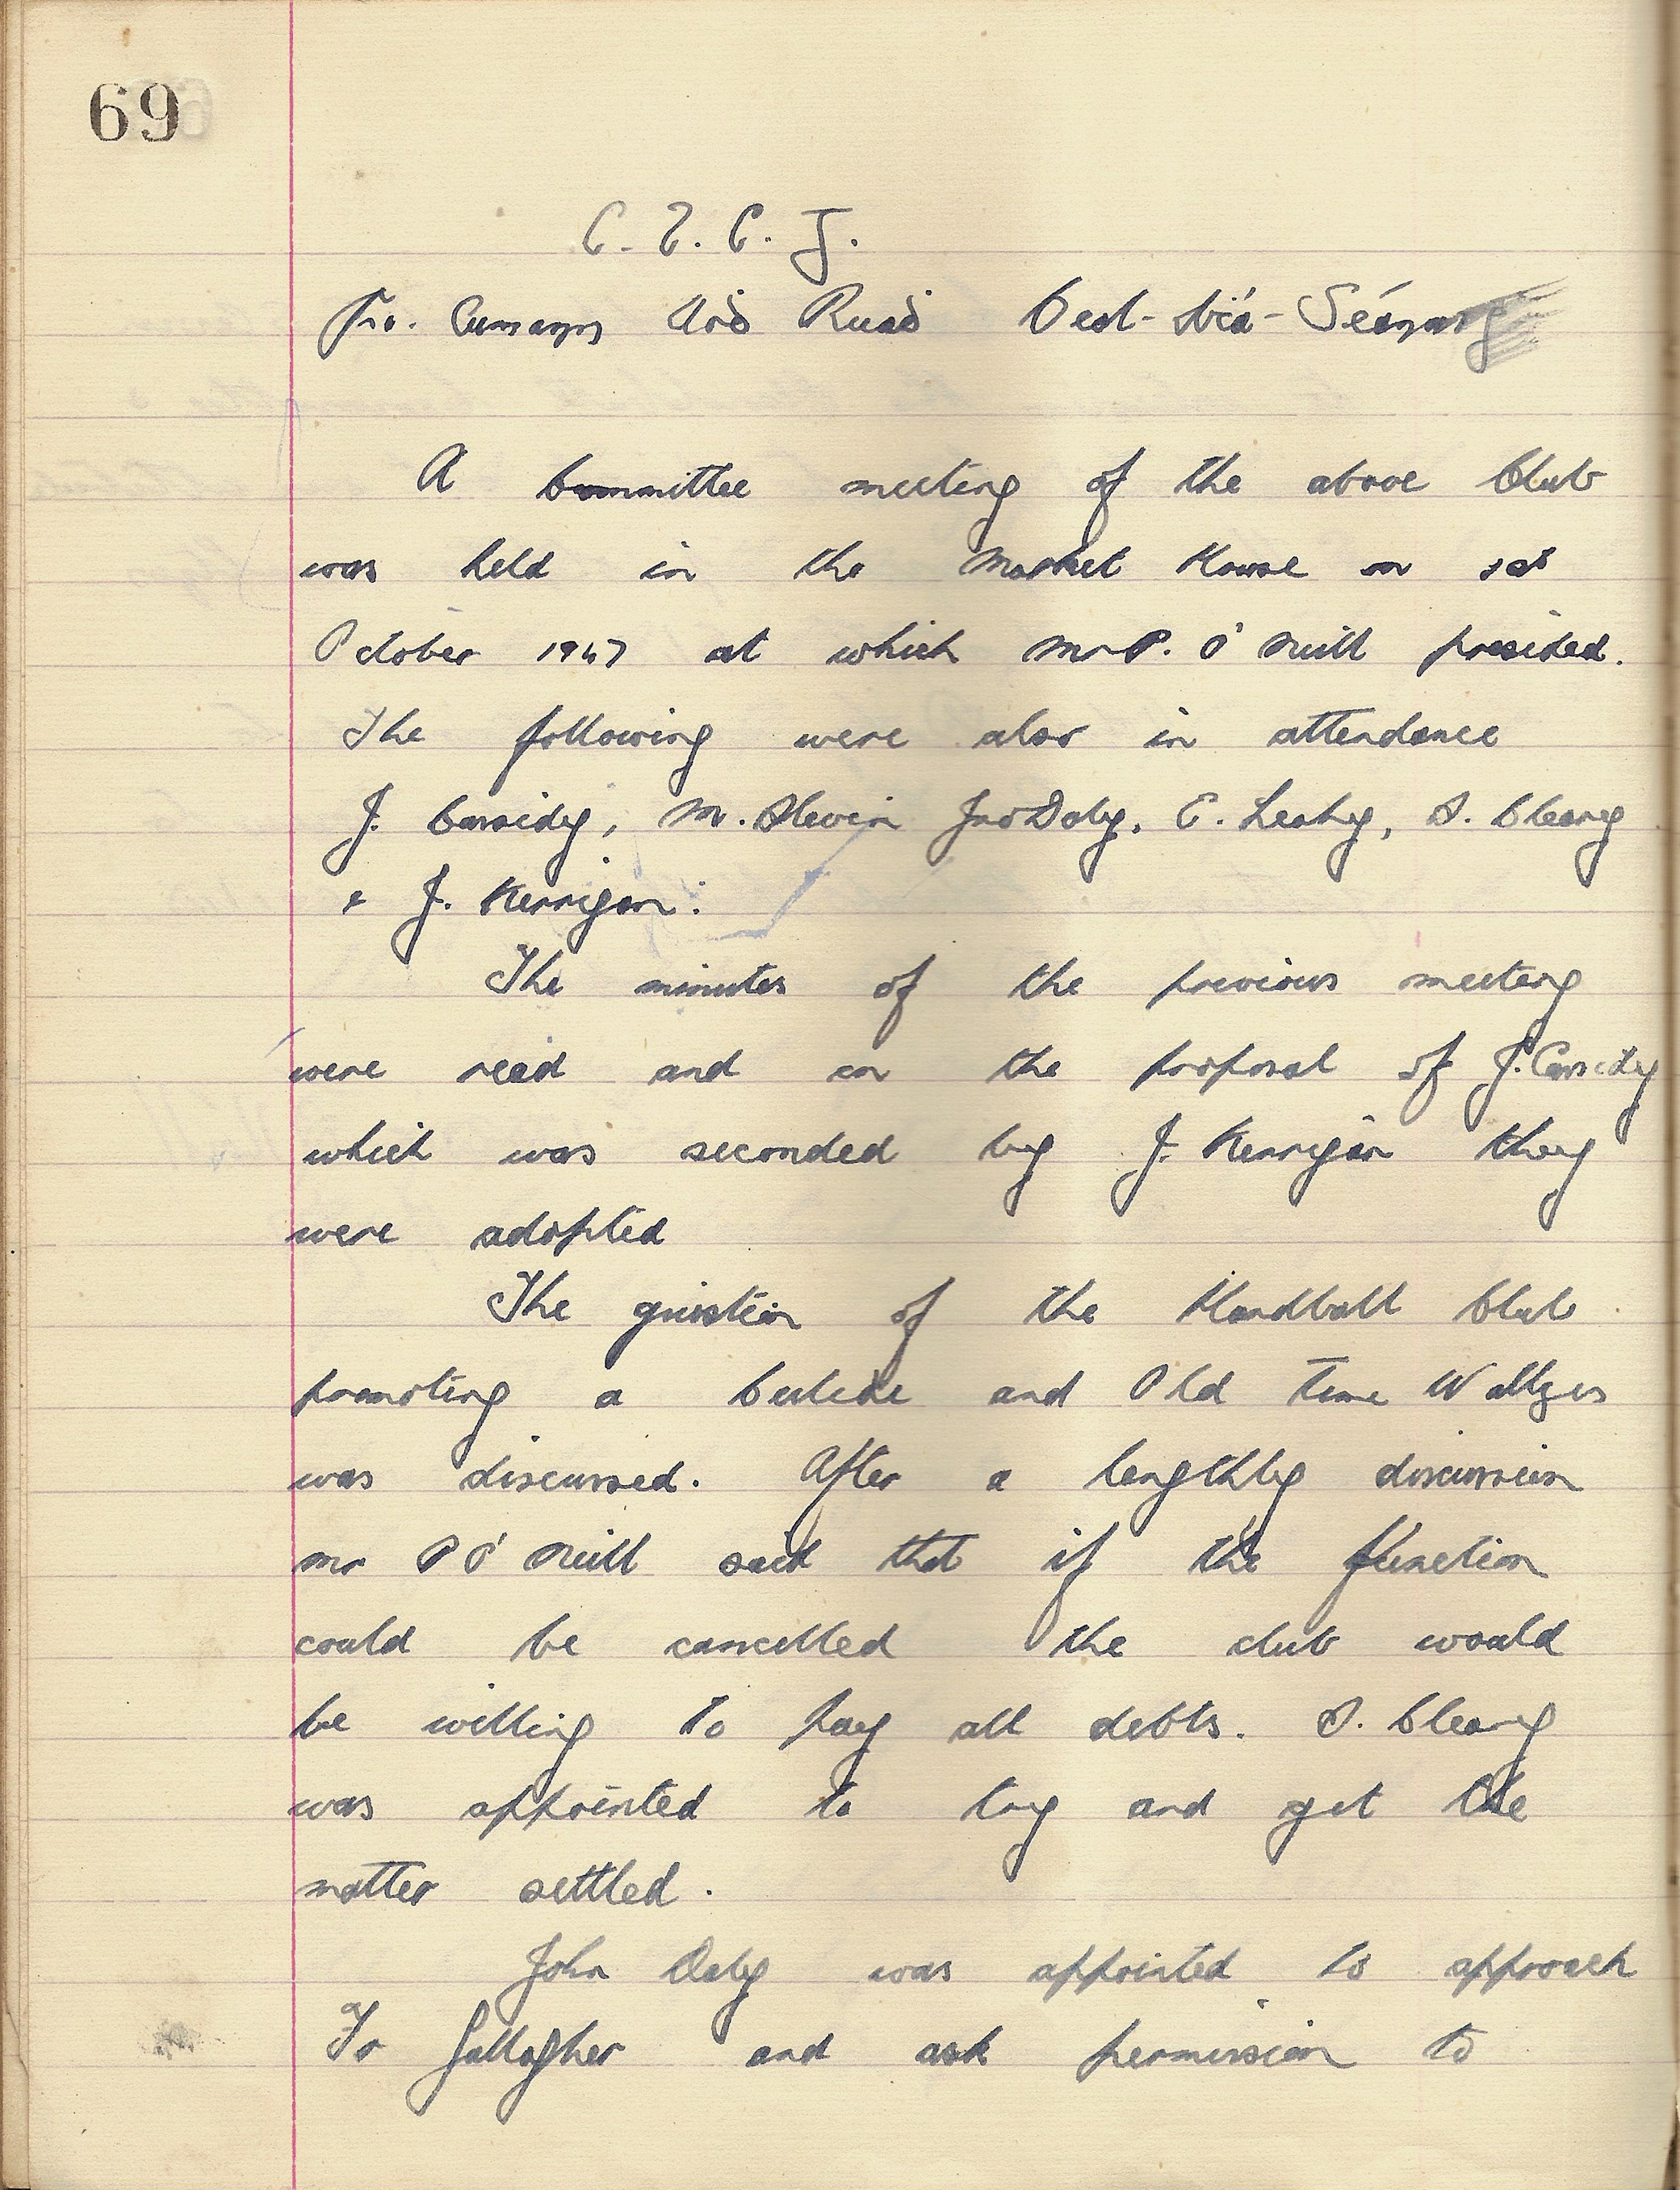 69
C. L. C. G.
Cumann Aoḋ Ruaḋ Beal-Áṫa-Seanaiġ
A Committee meeting of the above Club
was held in the Market House on 1st
October 1947 at which Mr P. O'Neill presided.
The following were also in attendance
J. Cassidy, M. Slevin Jno Daly, E. Leahy, S. Cleary
& J. Kerrigan.
The minutes of the previous meeting
were read and on the proposal of J. Cassidy
which was seconded by J. Kerrigan they
were adopted
The question of the Handball Club
promoting a Ceilidhe and Old Time Waltzes
was discussed. After a lengthly discussion
Mr P O'Neill said that if the function
could be cancelled the club would
be willing to pay all debts. S. Cleary
was appointed to try and get the
matter settled.
John Daly was appointed to approach
Fr Gallagher and ask permission to